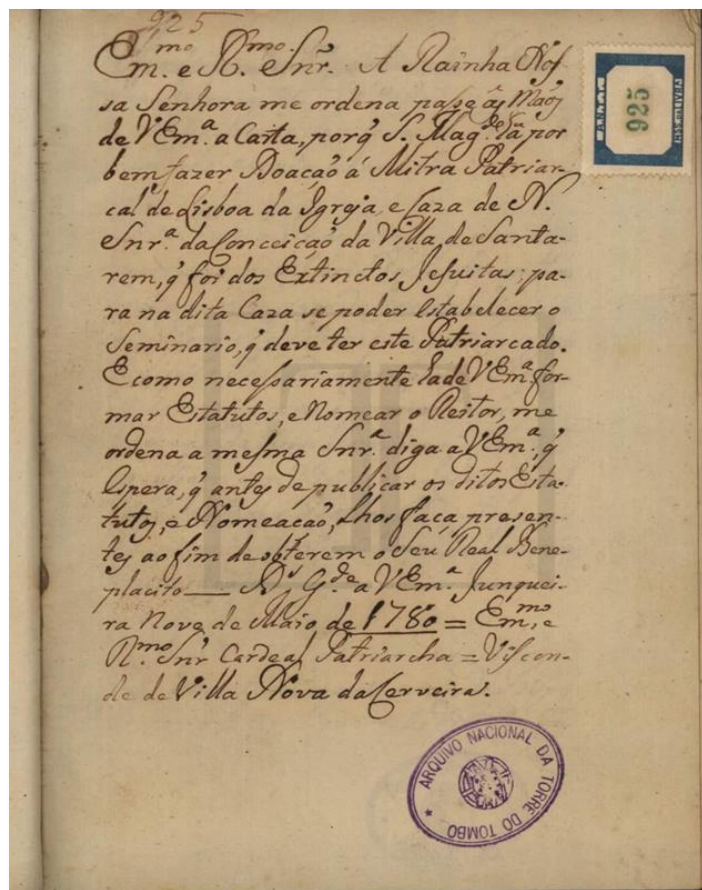 925
Em.mo e R.mo Snr. A Rainha Nos-
sa Senhora me ordena passe ás Mãos
de VEm.ª a Carta, porq̃ S. Mag.de há por
bem fazer Doação á Mitra Patriar-
cal de Lisboa da Igreja, e Caza de N.
Snr.ª da Conceição da Villa de Santa-
rem, q̃ foi dos Extinctos Jesuitas; pa-
ra na dita Caza se poder estabelecer o
Seminario, q̃ deve ter este Patriarcado.
E como necessariamente hade VEm.ª for-
mar Estatutos, e Nomear o Reitor, me
ordena a mesma Snr.ª diga a VEm.ª, q̃
espera, q̃ antes de publicar os ditos Esta-
tutos, e Nomeação, lhos faça presen-
tes ao fim de obterem o Seu Real Bene-
placito — D.s G.de a VEm.ª Junquei-
ra Nove de Maio de 1780 = Em.mo, e
R.mo Snr Cardeal Patriarcha = Viscon-
de de Villa Nova da Cerveira.
925
ARQUIVO NACIONAL DA TORRE DO TOMBO